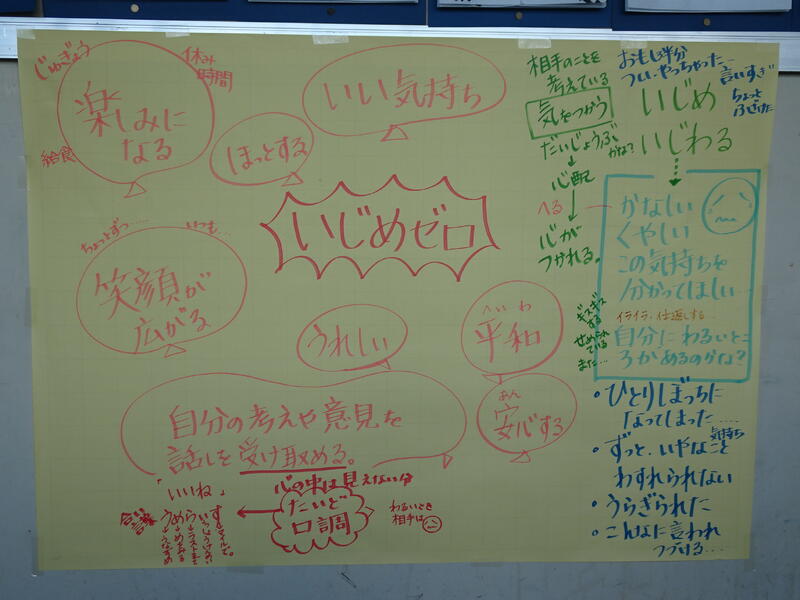 じゅぎょう
休み
時間
給食
楽しみに
なる
いい気持ち
ほっとする
いじめゼロ
ちょっとずつ……
いつも…
笑顔が
広がる
うれしい
へいわ
平和
あん
安心する
自分の考えや意見を
話しを受け取める。
心の中は見えない分
たいど
口調
わるいとき
相手は
「いいね」
合言葉
相手のことを
考えている
気をつかう
だいじょうぶ
かな?
心配
へる
心が
つかれる。
おもしろ半分
つい、やっちゃった…
言いすぎ
ちょっと
ふざけた
いじめ
いじわる
かなしい
くやしい
この気持ちを
分かってほしい…
イライラ、仕返しする…
自分にわるいとこ
ろがあるのかな?
ギスギス
する
せめられ
ている
また…
・ひとりぼっちに
なってしまった……
・ずっと、いやなこと
気持ち
わすれられない
・うらぎられた
・こんなに言われ
つづける…